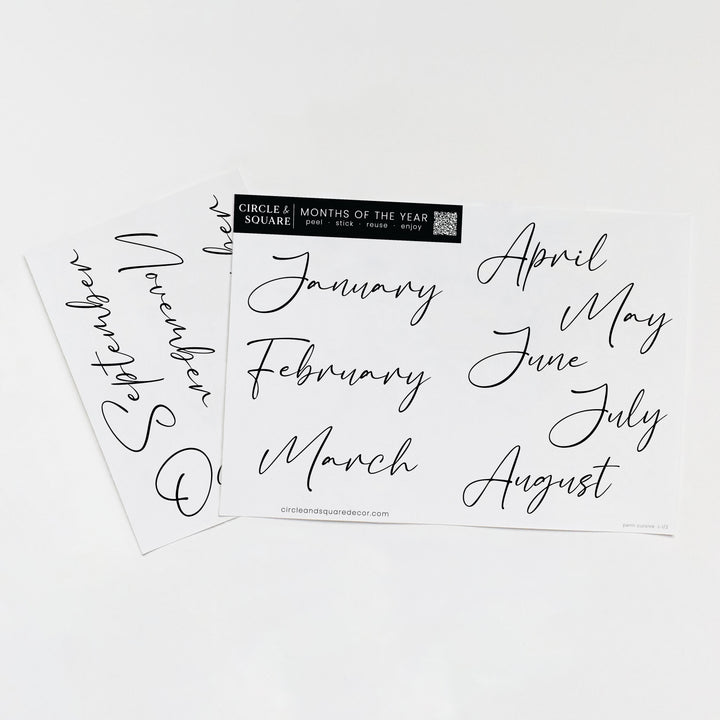 CIRCLE &
SQUARE
MONTHS OF THE YEAR
peel · stick · reuse · enjoy
January
February
March
April
May
June
July
August
circleandsquaredecor.com
September
November